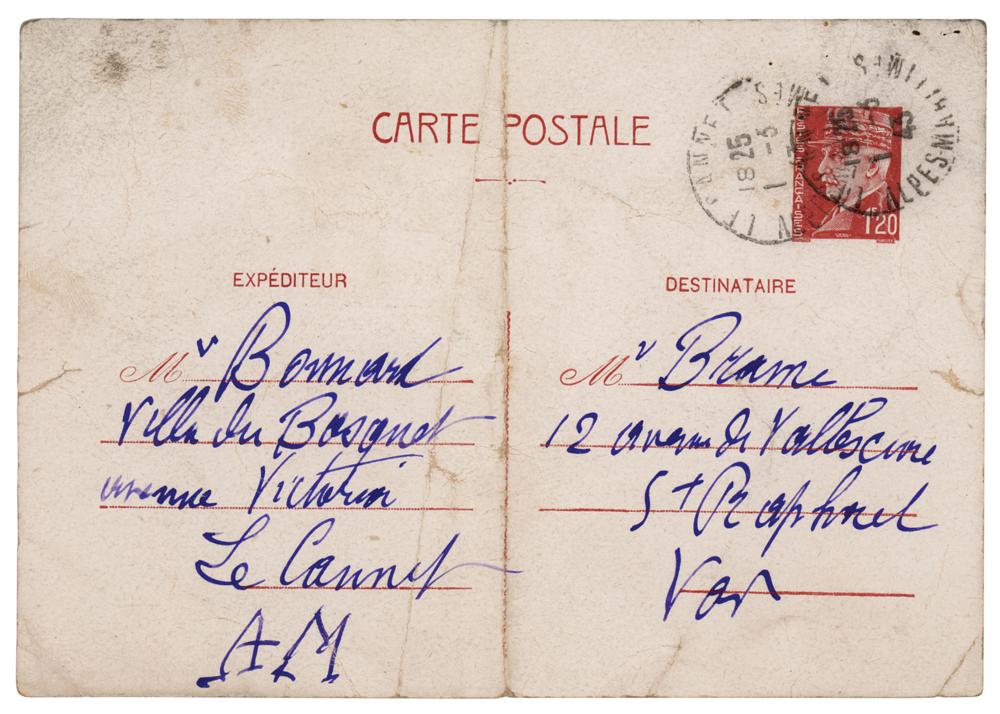 CARTE POSTALE
LE CANNET
ALPES-MMES
18 25
1 -5
POSTES FRANÇAISES
1F20
EXPÉDITEUR
Mr Bonnard
Villa du Bosquet
avenue Victoria
Le Cannet
AM
DESTINATAIRE
Mr Brame
12 avenue de Valescure
St Raphael
Var